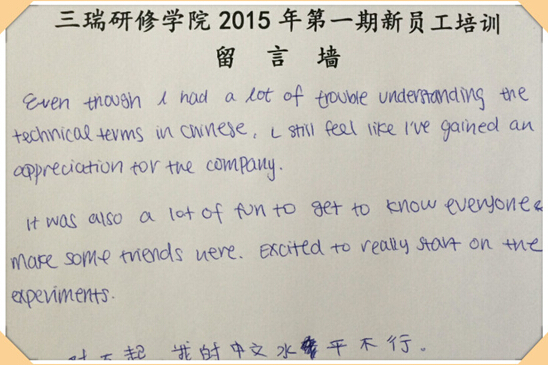 三瑞研修学院 2015 年第一期新员工培训
留 言 墙
Even though I had a lot of trouble understanding the
technical terms in Chinese, I still feel like I've gained an
appreciation for the company.
It was also a lot of fun to get to know everyone &
make some friends here. Excited to really start on the
experiments.
对不起 我的中文水平不行。